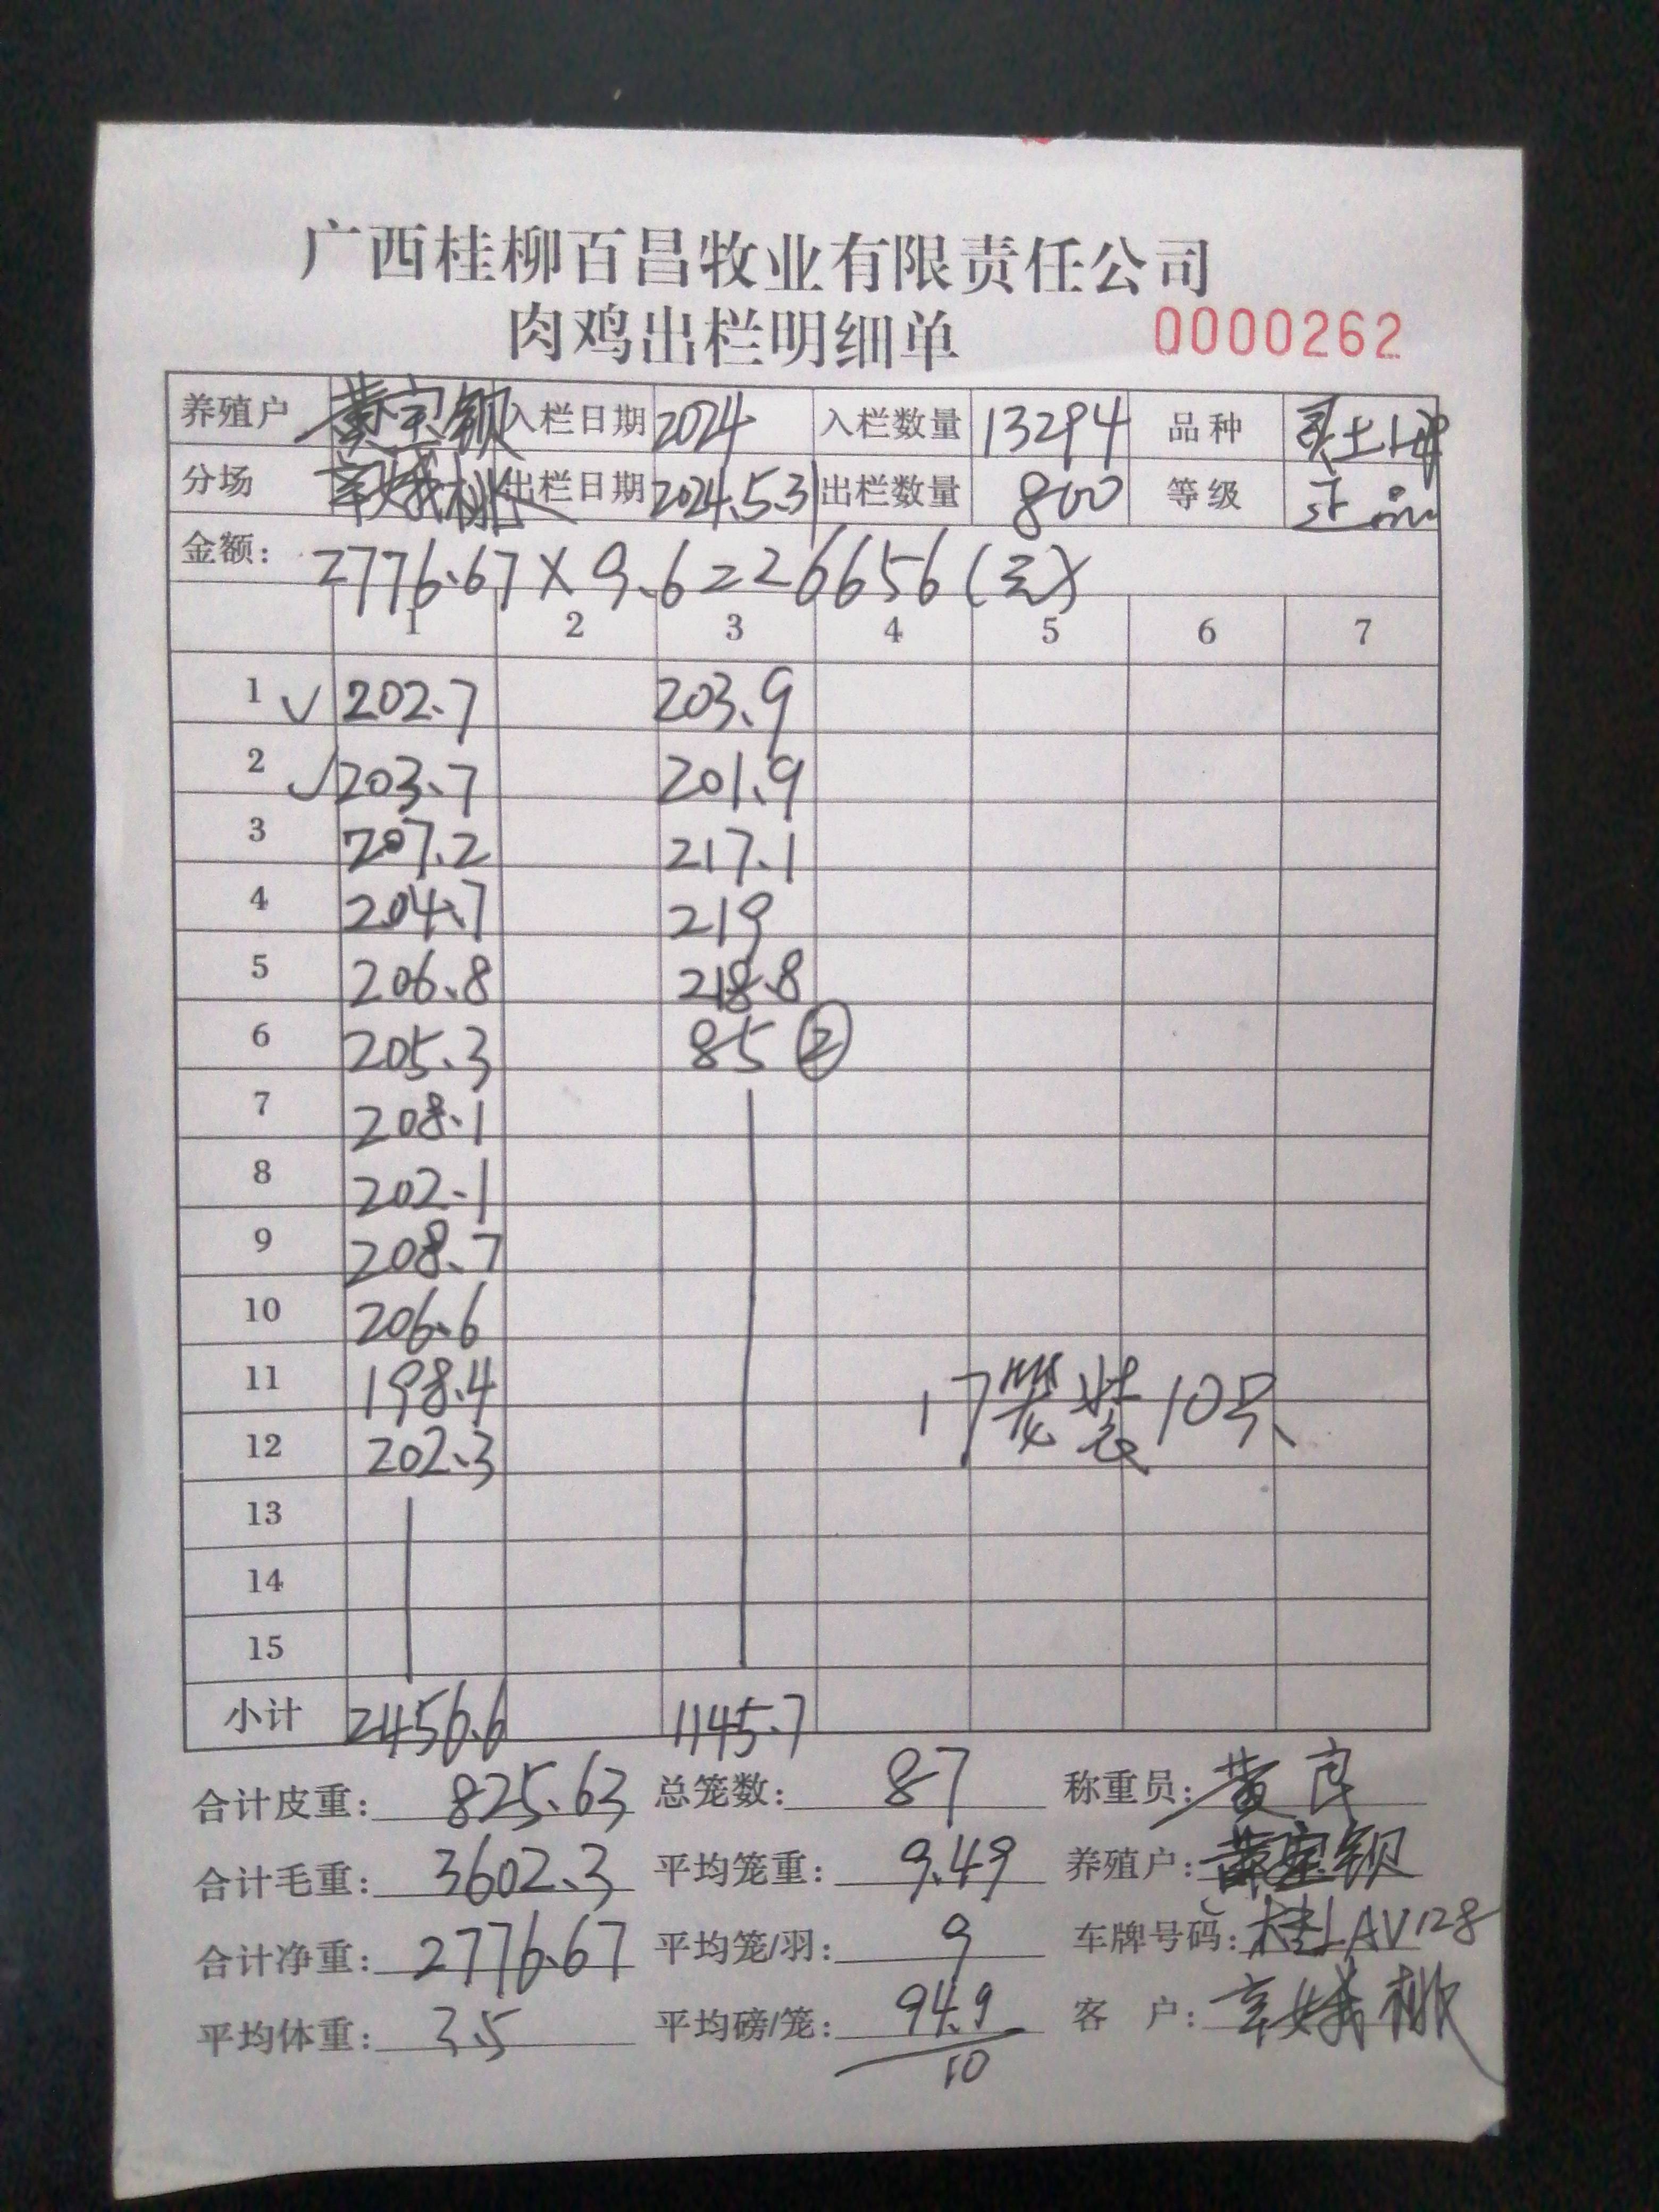 广西桂柳百昌牧业有限责任公司
肉鸡出栏明细单 0000262
养殖户 黄宝钡 入栏日期 2024 入栏数量 13294 品种 土
分场 辛娥桃 出栏日期 2024.5.31 出栏数量 800 等级 正品
金额: 2776.67×9.6=26656(元)
1 2 3 4 5 6 7
1 ✓ 202.7 203.9
2 ✓ 203.7 201.9
3 207.2 217.1
4 204.7 219
5 206.8 218.8
6 205.3 85 ②
7 208.1
8 202.1
9 208.7
10 206.6
11 198.4 17笼装10只
12 202.3
13
14
15
小计 2456.6 1145.7
合计皮重: 825.63 总笼数: 87 称重员: 黄良
合计毛重: 3602.3 平均笼重: 9.49 养殖户: 黄宝钡
合计净重: 2776.67 平均笼/羽: 9 车牌号码: 桂LAV128
平均体重: 3.5 平均磅/笼: 94.9 客户: 辛娥桃
10